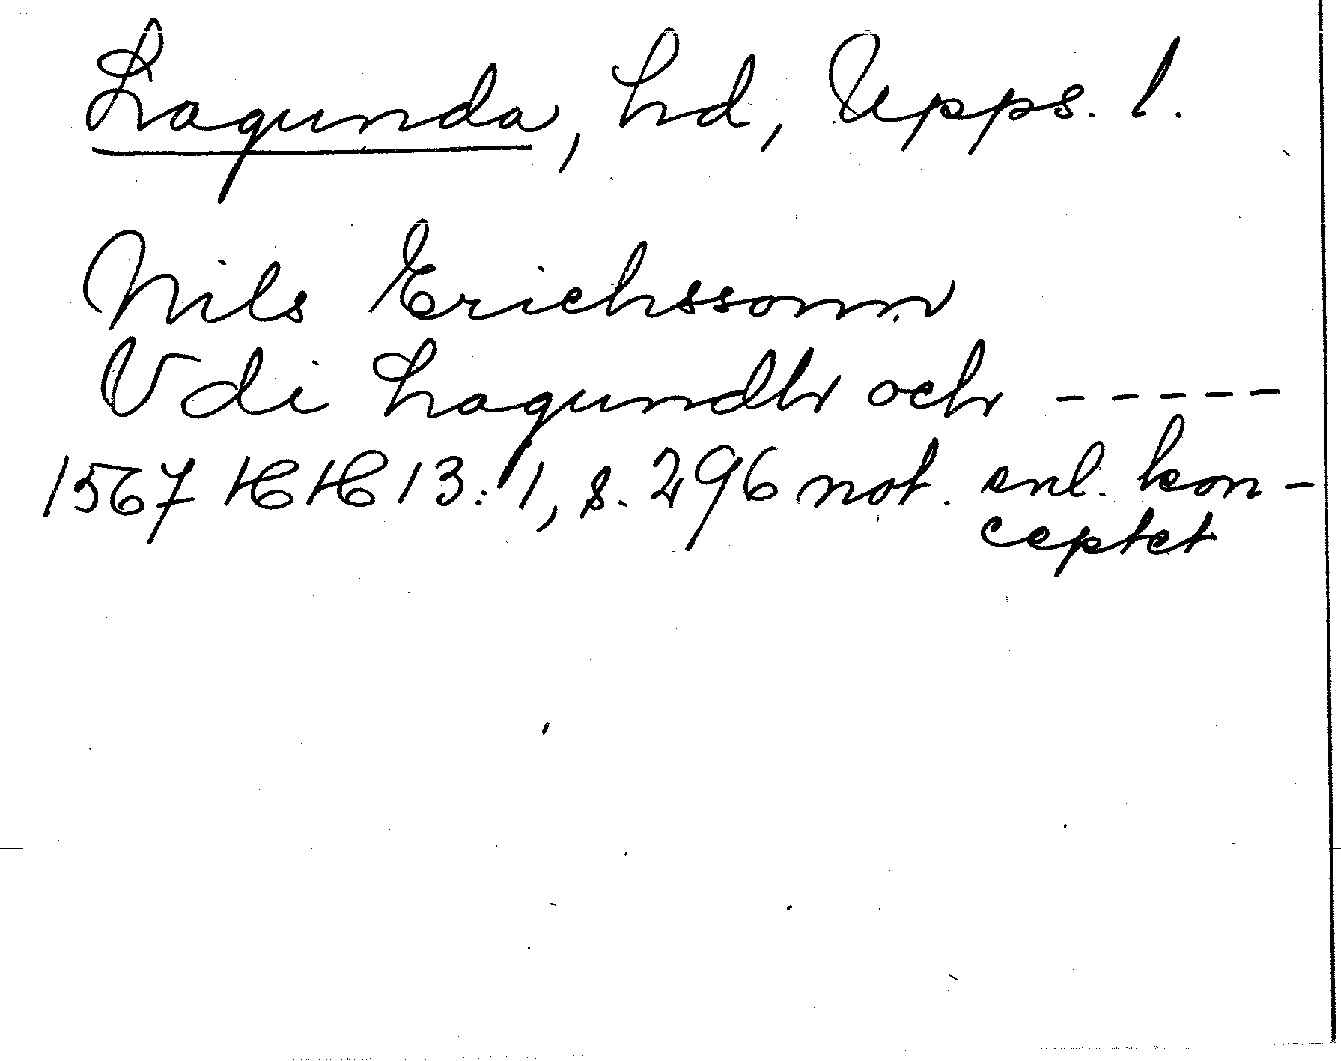 Lagunda, hd, Upps. l.
Nils Erichssonn
Vdi Lagundh och -----
1567 HH 13:1, s. 296 not. enl. kon-
ceptet